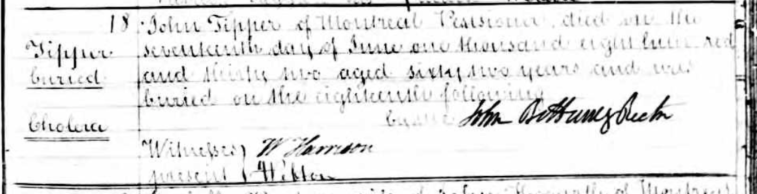 18 John Tipper of Montreal Pensioner, died on the
Tipper seventeenth day of June one thousand eight hundred
buried and thirty two aged sixty two years and was
buried on the eighteenth following
Cholera by me John Bethune Rector
Witnesses W Harrison
present